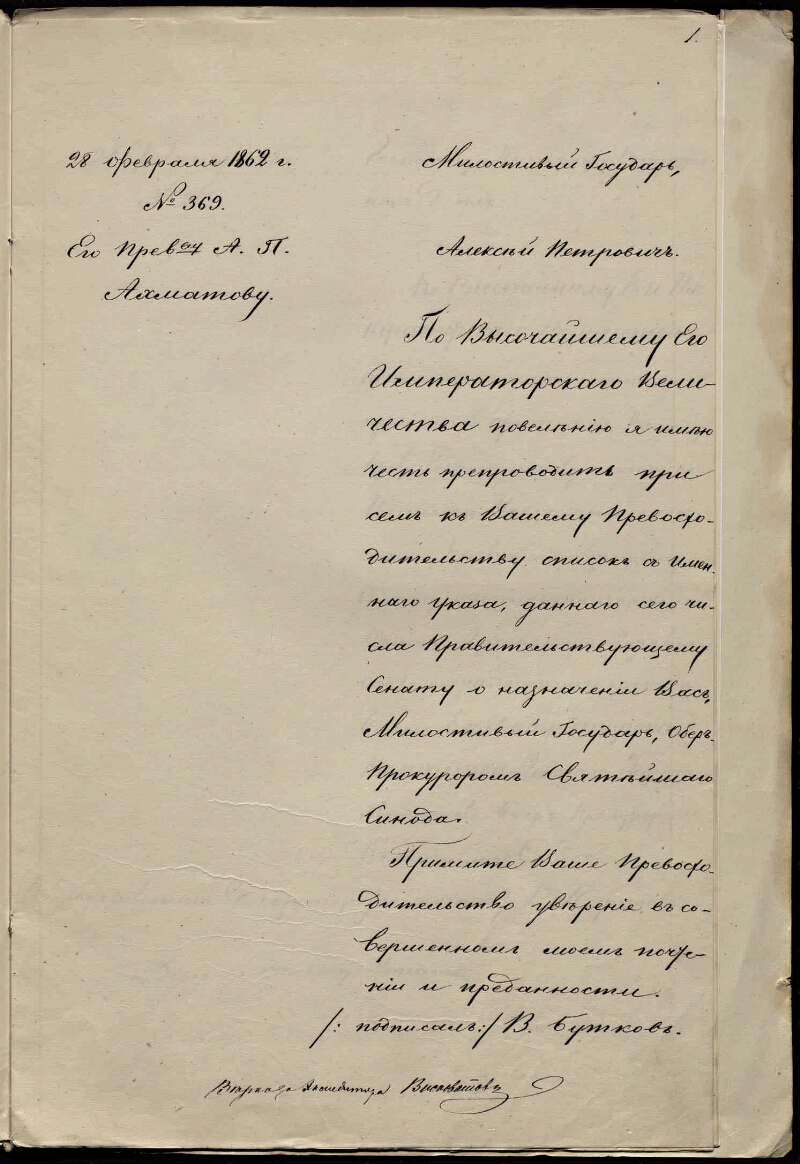 1.
28 Февраля 1862 г.
№ 369.
Его Прев<sup>ву</sup> А. П.
Ахматову.
Милостивый Государь,
Алексѣй Петровичъ.
По Высочайшему Его
Императорскаго Вели-
чества повелѣнію я имѣю
честь препроводить при
семъ къ Вашему Превосхо-
дительству списокъ съ Имен-
наго Указа, даннаго сего чи-
сла Правительствующему
Сенату о назначеніи Васъ,
Милостивый Государь, Оберъ-
Прокуроромъ Святѣйшаго
Синода.
Примите Ваше Превосхо-
дительство увѣреніе въ со-
вершенномъ моемъ почте-
ніи и преданности.
/: подписалъ:/ В. Бутковъ.
Экспедитора